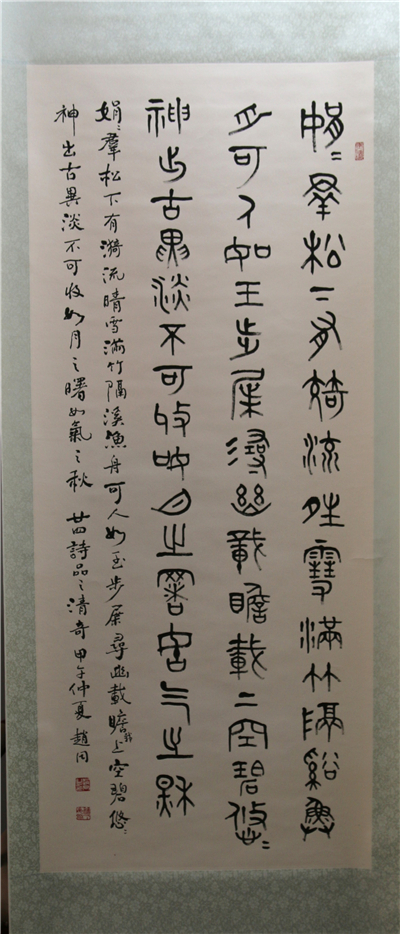 娟〻羣松下有漪流晴雪滿竹隔谿魚
舟可人如玉步屟尋幽載瞻載上空碧悠〻
神出古異淡不可收如月之曙如气之秋
娟〻羣松下有漪流晴雪滿竹隔溪漁舟可人如玉步屟尋幽載瞻載上空碧悠〻
神出古異淡不可收如月之曙如氣之秋 廿四詩品之清奇 甲午仲夏 趙